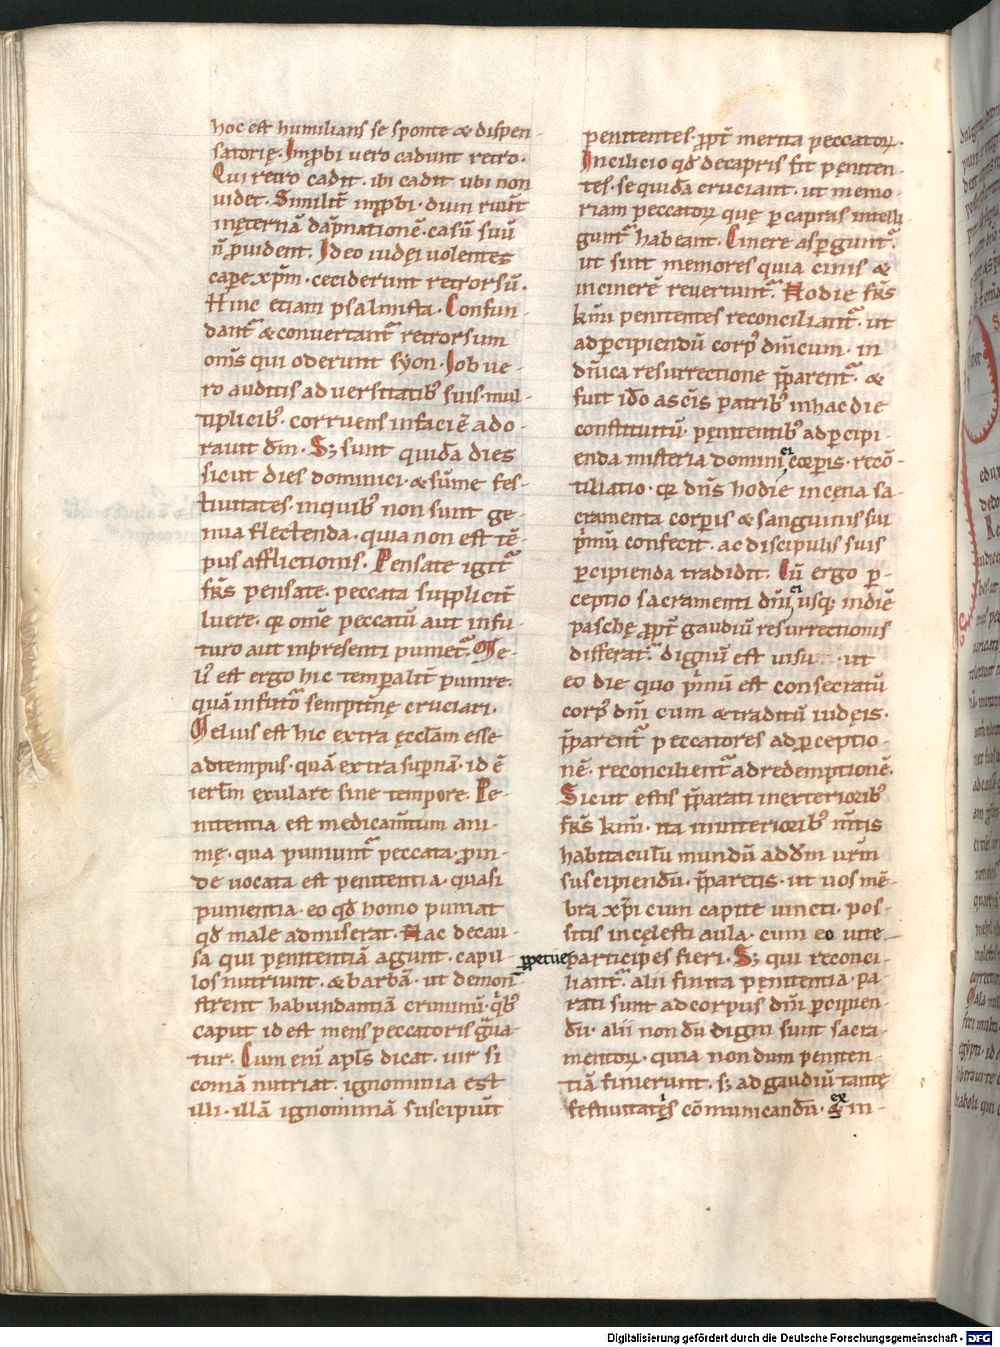 hoc est humilians se sponte & dispen-
satorię. Inp̱bi uero cadunt retro.
Qui retro cadit. ibi cadit ubi non
uidet. Similit̄ inp̱bi. dum ruūt
inęternā dāpnationē. casū suū
n̄ p̱uident. Ideo iudęi uolentes
cap̱e xp̄m. ceciderunt retrorsū.
Hinc etiam psalmista. Confun-
dant᷑ & conuertant᷑ retrorsum
om̄s qui oderunt syon. Iob ue-
ro auditis aduersitatib; suis mul-
tiplicib;. corruens infaciē ado-
rauit dm̄. S; sunt quidā dies
sicut dies dominici. & sūme fes-
tiuitates. inquib; non sunt ge-
nua flectenda. quia non est tē-
pus afflictionis. Pensate igit᷑
frs̄ pensate. peccata supplicit̄
luere. qr̄ om̄e peccatū aut infu-
turo aut inpresenti puniet᷑. Me-
li᷒ est ergo hic temp̱alit̄ punire.
quā infut᷒o sempit̄nę cruciari.
Melius est hic extra ęccl̄am esse
adtempus. quā extra sup̱nā. id ē
ierl̄m exulare sine tempore. Pe-
nitentia est medicam̄tum ani-
mę. qua puniunt᷑ peccata. p̱in-
de uocata est penitentia. quasi
punientia. eo qđ homo puniat
qđ male admiserat. Hac decau-
sa qui pęnitentiā agunt. capil-
los nutriunt. & barbā. ut demon-
strent habundantiā criminū. qͥb;
caput id est mens peccatoris gᵃua-
tur. Cum eni᷒ apl̄s dicat. uir si
comā nutriat. ignominia est
illi. illā ignominiā suscipiūt
penitentes. p̱pt̄ merita peccatoꝝ.
Incilicio qđ decapris fit pęniten-
tes. se quidā cruciant. ut memo-
riam peccatoꝝ quę p̱ capras intelli-
gunt᷑ habeant. Cinere asp̱gunt᷑.
ut sint memores quia cinis &
incinerē reuertunt᷑. Hodie frs̄
km̄i penitentes reconciliant᷑. ut
adp̱cipiendū corp᷒ dn̄icum. in
dn̄ica resurrectione p̄parent᷑. &
fuit id̄o asc̄is patrib; inhac die
constitutū. pęnitentib; adp̱cipi-
enda misteria domini ei᷒ corp̱is. recō-
tiliatio. qr̄ dn̄s hodie incena sa-
cramenta corp̱is & sanguinis sui
pͥmū confecit. ac discipulis suis
p̱cipienda tradidit. Cū ergo p̱-
ceptio sacramenti dn̄i ei usq; indiē
paschę p̱pt̄ gaudiū resurrectionis
differat᷑. dignū est uisu. ut
eo die quo pͥmū est consecratū
corp᷒ dn̄icum & traditū iudęis.
p̄parent᷑ peccatores adp̱ceptio-
nē. reconcilient᷑ adredemptionē.
Sicut estis p̄parati inexteriorib;
frs̄ km̄i. ita ininteriorib; ūris
habitaculū mundū addm̄ ur̄m
suscipiendū. p̄paretis. ut uos mē-
bra xp̄i cum capite uincti. pos-
sitis incęlesti aula. cum eo uite
p̱petue participes fieri. S; qui reconci-
liant᷑. alii finita penitentia. pa-
rati sunt adcorpus dn̄i p̱cipien-
dū. alii non dū digni sunt sacra-
mentoꝝ. quia nondum peniten-
tiā finierunt. s; ad gaudiū tantę
festiuitatis cōmunicandū. & ex in-
Digitalisierung gefördert durch die Deutsche Forschungsgemeinschaft - DFG